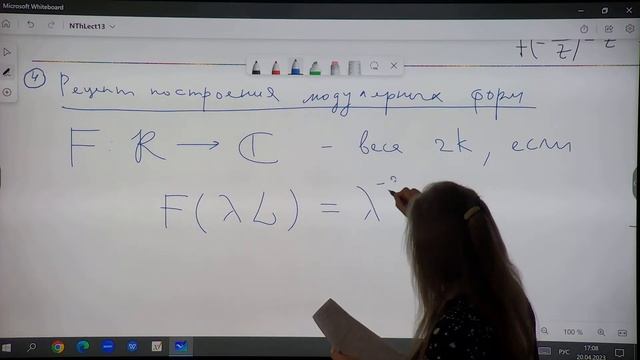 Microsoft Whiteboard
NThLect13
④ Рецепт построения модулярных форм
F : R → ℂ - веса 2k, если
F(λL) = λ⁻²
100 %
РУС
17:08
20.04.2023